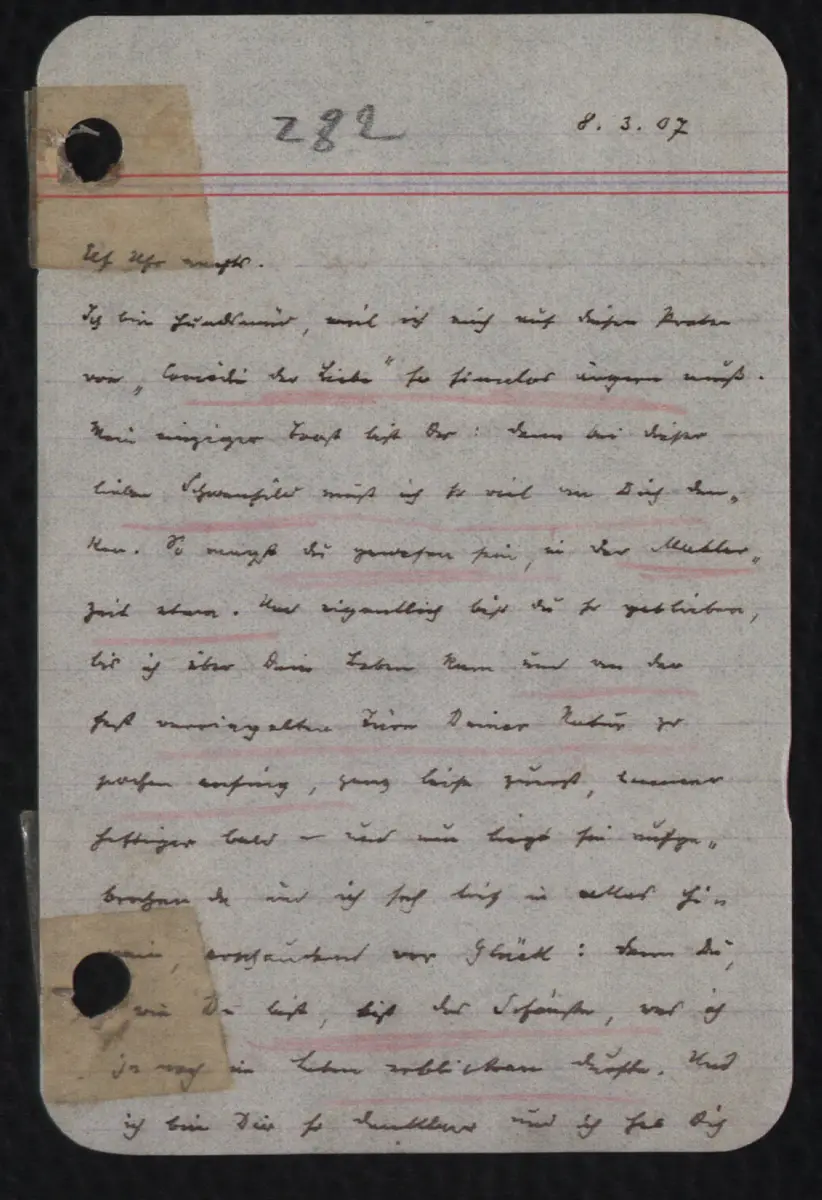 282
8. 3. 07
Elf Uhr nachts.
Ich bin hundsmüd, weil ich mich auf diesen Proben
von „Comödie der Liebe" so sinnlos ärgern muß.
Mein einziger Trost bist Du: denn bei dieser
lieben Schwanhild muß ich so viel an Dich den„
ken. So magst du gewesen sein, in der Mahler„
zeit etwa. Und eigentlich bist du so geblieben,
bis ich über Dein Leben kam und an den
fest verriegelten Türen Deiner Natur zu
pochen anfing, ganz leise zuerst, immer
heftiger bald – und nun liegt sie aufge„
brochen da und ich seh tief in alles hi„
nein, erschauernd vor Glück: denn Du,
wie Du bist, bist das Schönste, was ich
je noch im Leben erblicken durfte. Und
ich bin Dir so dankbar und ich hab Dich